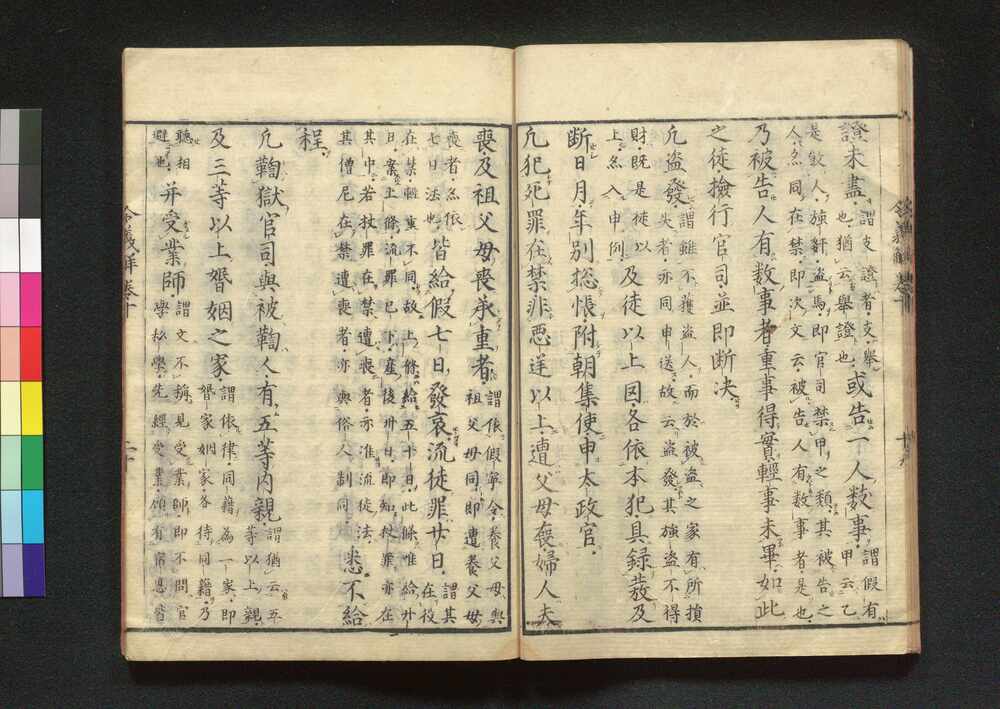 證未盡謂支證者支擧
也猶云擧證也或告一人数事謂假有
甲云乙
是敎人強奸盗馬即官司禁甲之類其被告之
人亦同在禁即次文云被告人有数事者是也
乃被告人有数事者重事得實輕事未畢如此
之徒撿行官司並即断決
凡盗發謂雖不獲盗人而於被盗之家有所損
失者亦同申送故云盗發其強盗不得
財既是徒以
上亦入申例及徒以上囚各依本犯具録發及
断日月年別惣帳附朝集使申太政官
凡犯死罪在禁非惡逆以上遭父母喪婦人夫
喪及祖父母喪承重者謂依假寧令養父母與
祖父母同即遭養父母
喪者亦依
七日法也皆給假七日發哀流徒罪廿日謂其
在役
在禁輕重不同故上條給五十日此條唯給廿
日案上條流罪已下産後卅日即知杖罪亦在
其中若杖罪在禁遭喪者亦准流徒法
其僧尼在禁遭喪者亦與俗人制同悉不給
程
凡鞫獄官司與被鞫人有五等内親謂猶云五
等以上親
及三等以上婚姻之家謂依律同籍為一家即
婚家姻家各待同籍乃
聽相
避也并受業師謂文不稱見受業師即不問官
學私學先經受業須有
令義解卷十
十九
令義解卷十
二十